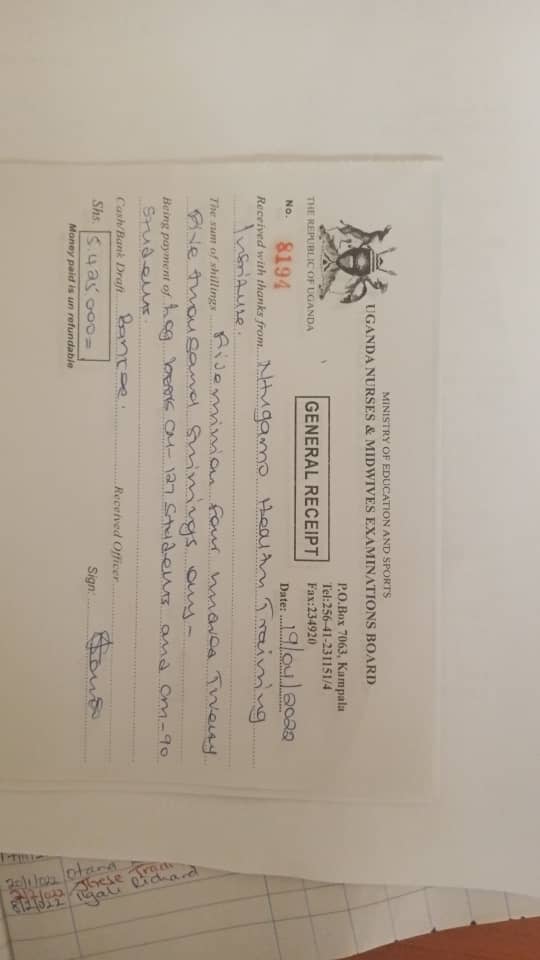 MINISTRY OF EDUCATION AND SPORTS
UGANDA NURSES & MIDWIVES EXAMINATIONS BOARD
P.O.Box 7063, Kampala
Tel:256-41-231151/4
Fax:234920
THE REPUBLIC OF UGANDA
GENERAL RECEIPT
No. 8194
Date: 19/04/2022
Received with thanks from Ntugamo Health Training
Institute.
The sum of shillings Five million four hundred Twenty
Five thousand shillings only-
Being payment of Log books CM-127 Students and CM-90
Students.
Cash/Bank Draft Received Officer
Shs. 5,425,000= Sign:
Money paid is un refundable
20/1/022
2/2/022 These
8/2/022 Richard